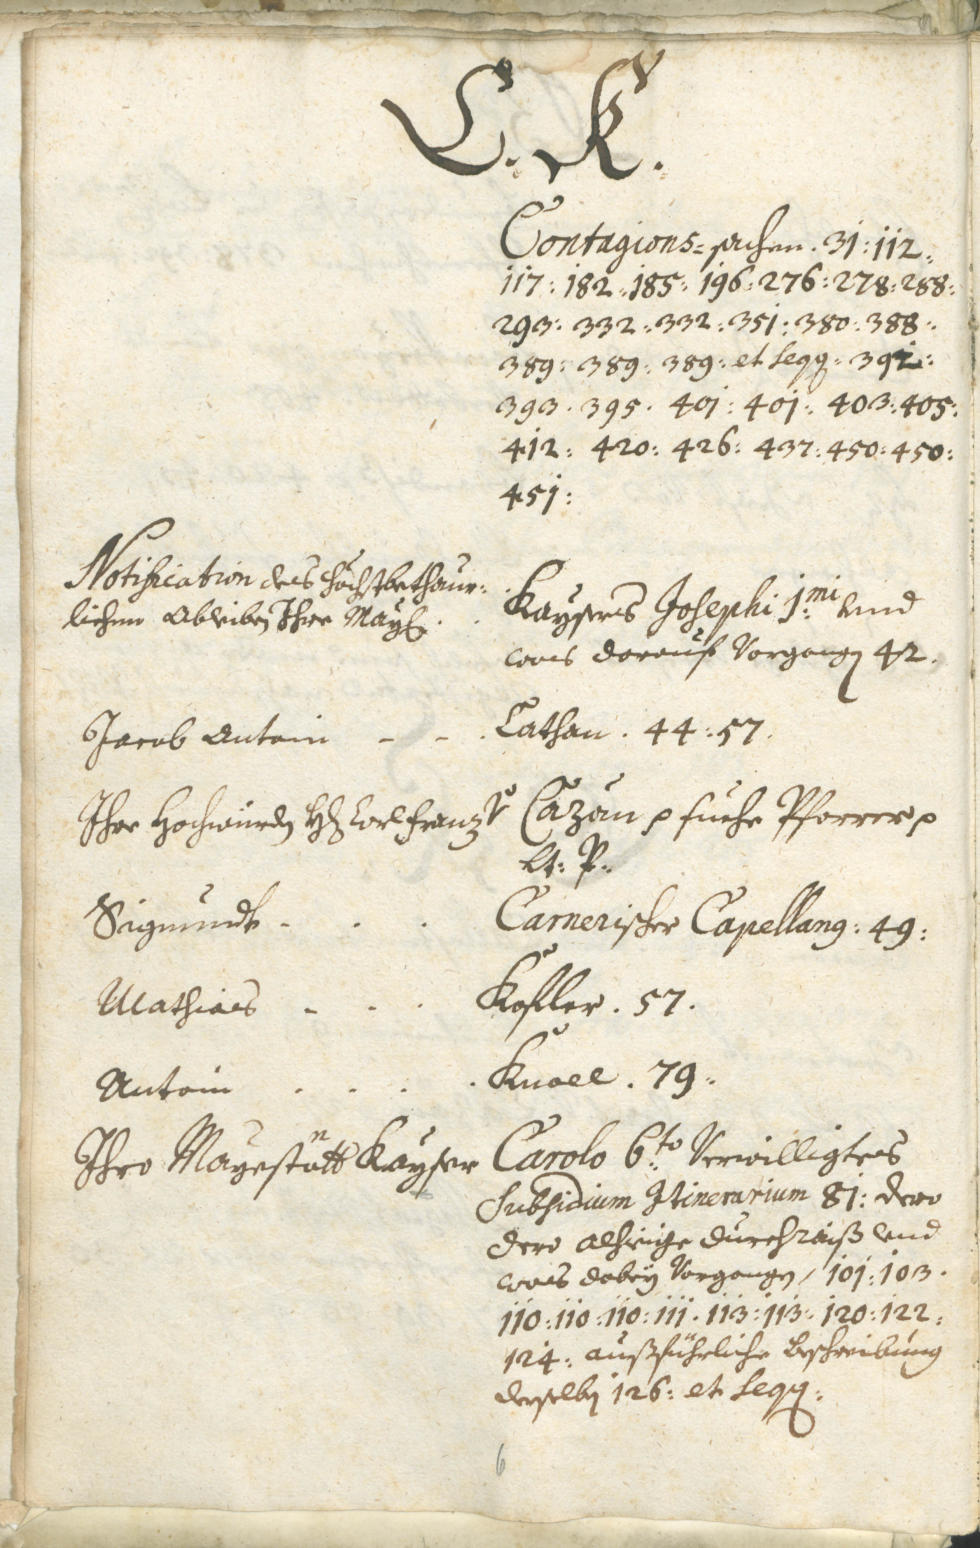 C. K.
Contagions-sachen. 31: 112.
117: 182: 185: 196: 276: 278: 288:
293: 332: 332: 351: 380: 388:
389: 389: 389: et seqq: 391:
393. 395. 401: 401: 403: 405:
412: 420: 426: 437: 450: 450:
451:
Notification des höchstbethaur-
lichen Ableiben Ihro May:
Kaysers Josephi 1:mi und
was darauf Vorgangen 42.
Jacob Antoni - - . Cathan. 44: 57.
Ihro Hochwürden H: Carl Franz v Cazan p suche Pfarrer p
Lt: P.
Sigmundt - . . Carnerischer Capellang: 49:
Mathias - - . Kofler. 57.
Antoni . . . . Knoll. 79.
Ihro Mayestätt Kayser Carolo 6:to Verwilligtes
Subsidium Itinerarium 81: dero
dero alhieige durchraiß und
was dabey Vorgangen / 101: 103.
110: 110: 110: 111. 113: 113: 120: 122:
124: außführliche Beschreibung
derselben 126: et seqq:
6